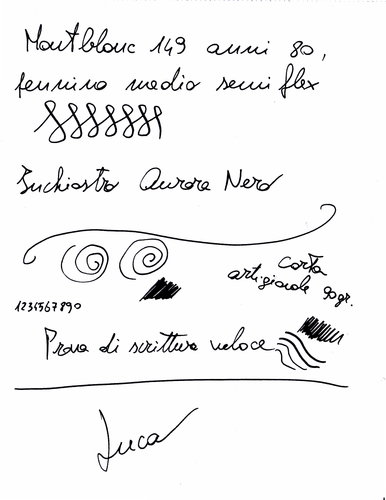 Montblanc 149 anni 80,
pennino medio semi flex
Inchiostro Aurora Nero
carta
artigianale 90gr.
1234567890
Prova di scrittura veloce
Luca